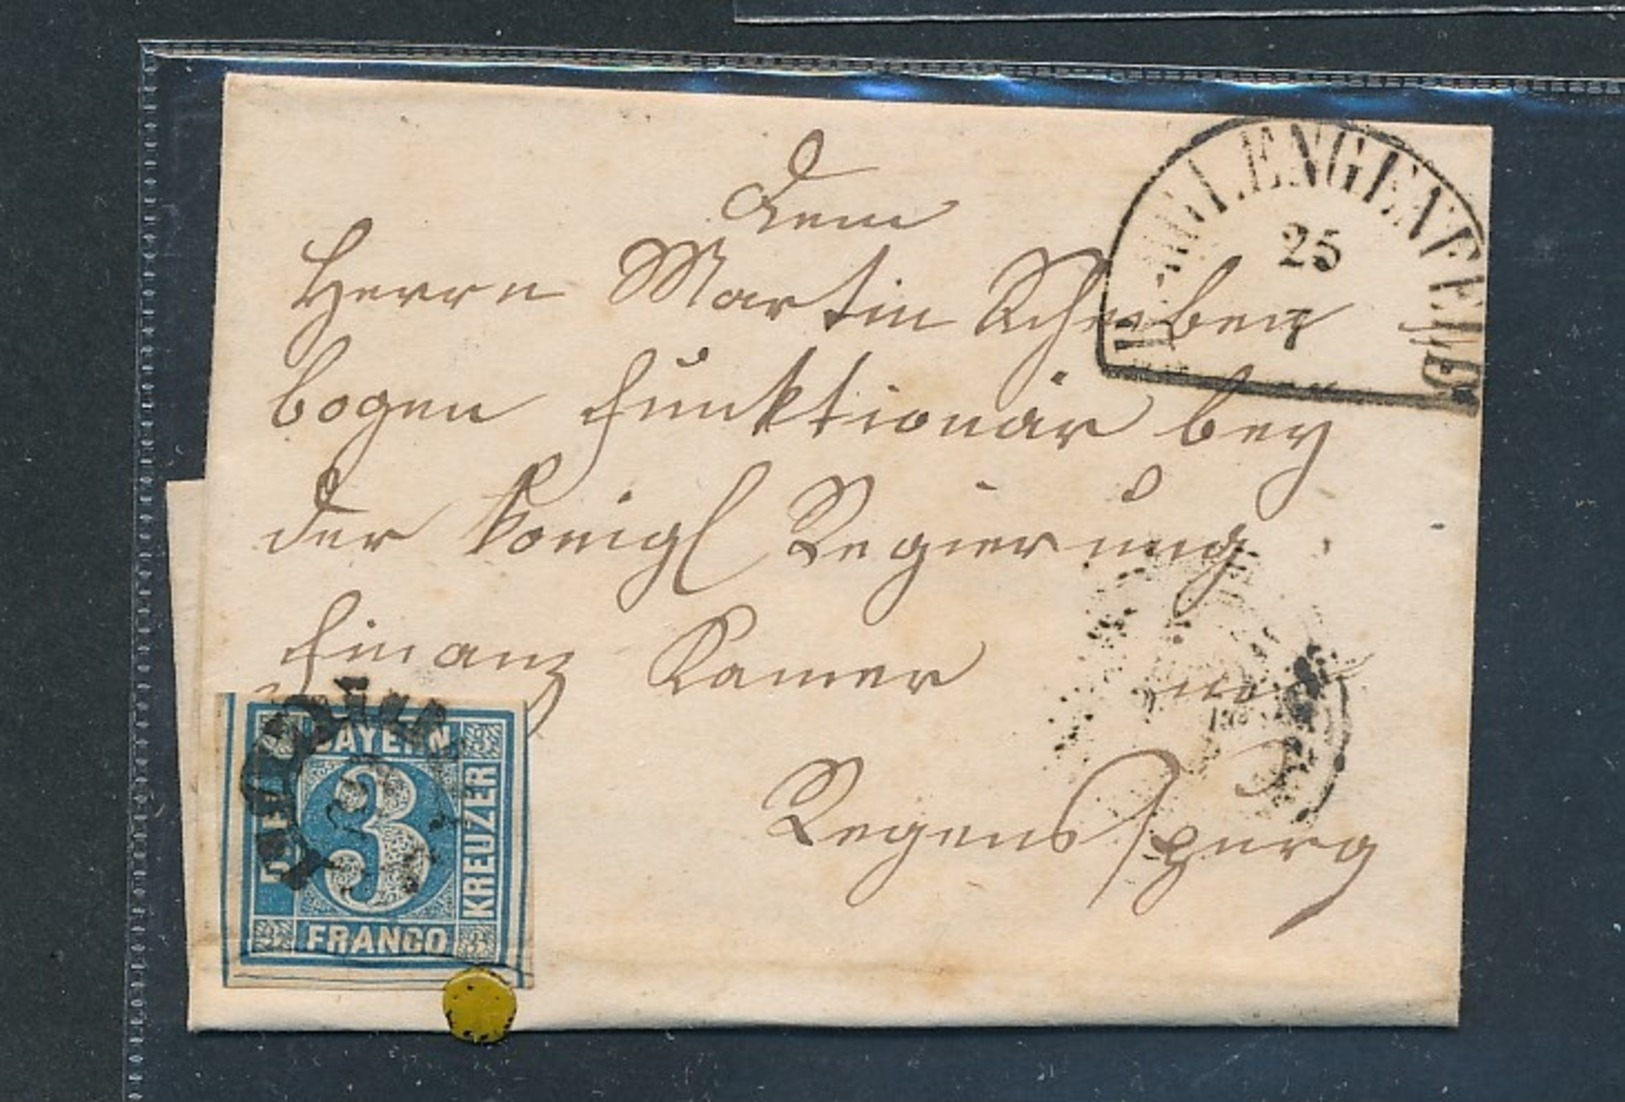 Dem
Herrn Martin Scheiben
bogen Funktionär bey
der Königl Regierung
Finanz Kamer
in
Regensspurg
BURGLENGENFELD
25
7
BAYERN
DREI
3
KREUZER
FRANCO